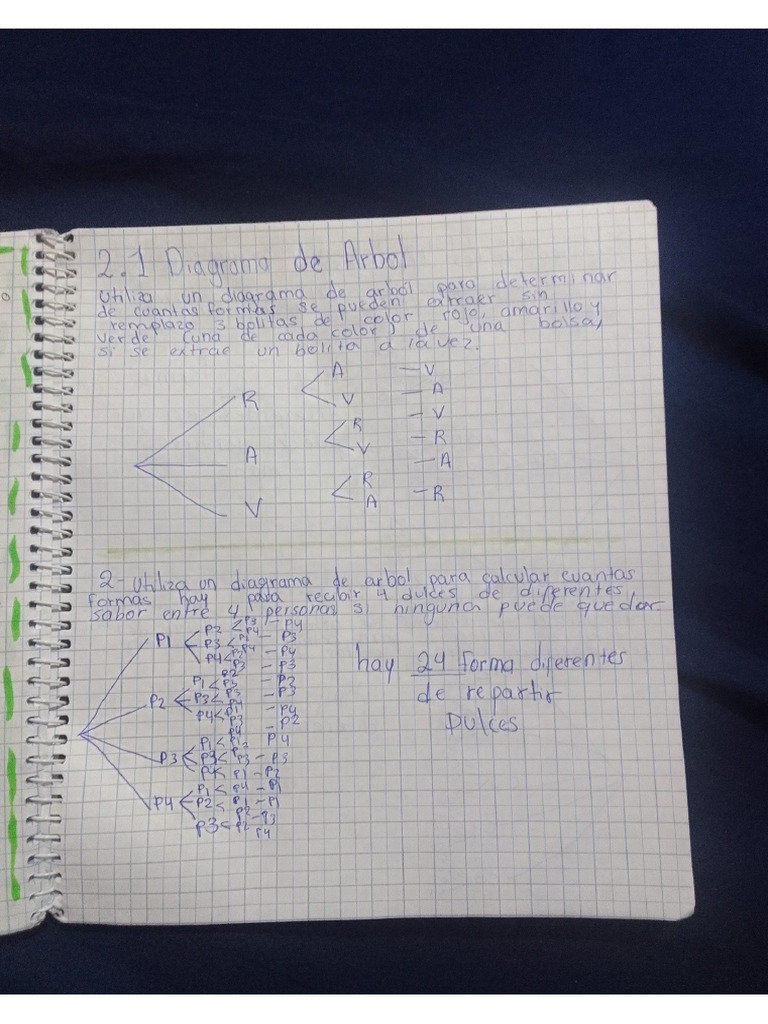 2.1 Diagrama de Arbol
Utiliza un diagrama de arbol para determinar
de cuantas formas se pueden extraer sin
remplazo 3 bolitas de color rojo, amarillo y
verde (una de cada color) de una bolsa,
si se extrae un bolita a la vez.
A — V
R < V — A
— V
A < R — R
V — A
V < R
A — R
2- Utiliza un diagrama de arbol para calcular cuantas
formas hay para recibir 4 dulces de diferentes
sabor entre 4 personas si ninguna puede quedar
P1 < P2 < P3 — P4
P3 < P4 — P3
P4 <
P2 < P1 < P3
P3 <
P4 < P1
P3 < P1 <
P4 < P1 — P2
P4 < P1 < P4 — P1
P2 < P1 — P1
P3 < P2
P4
hay 24 forma diferentes
de repartir
DULCES